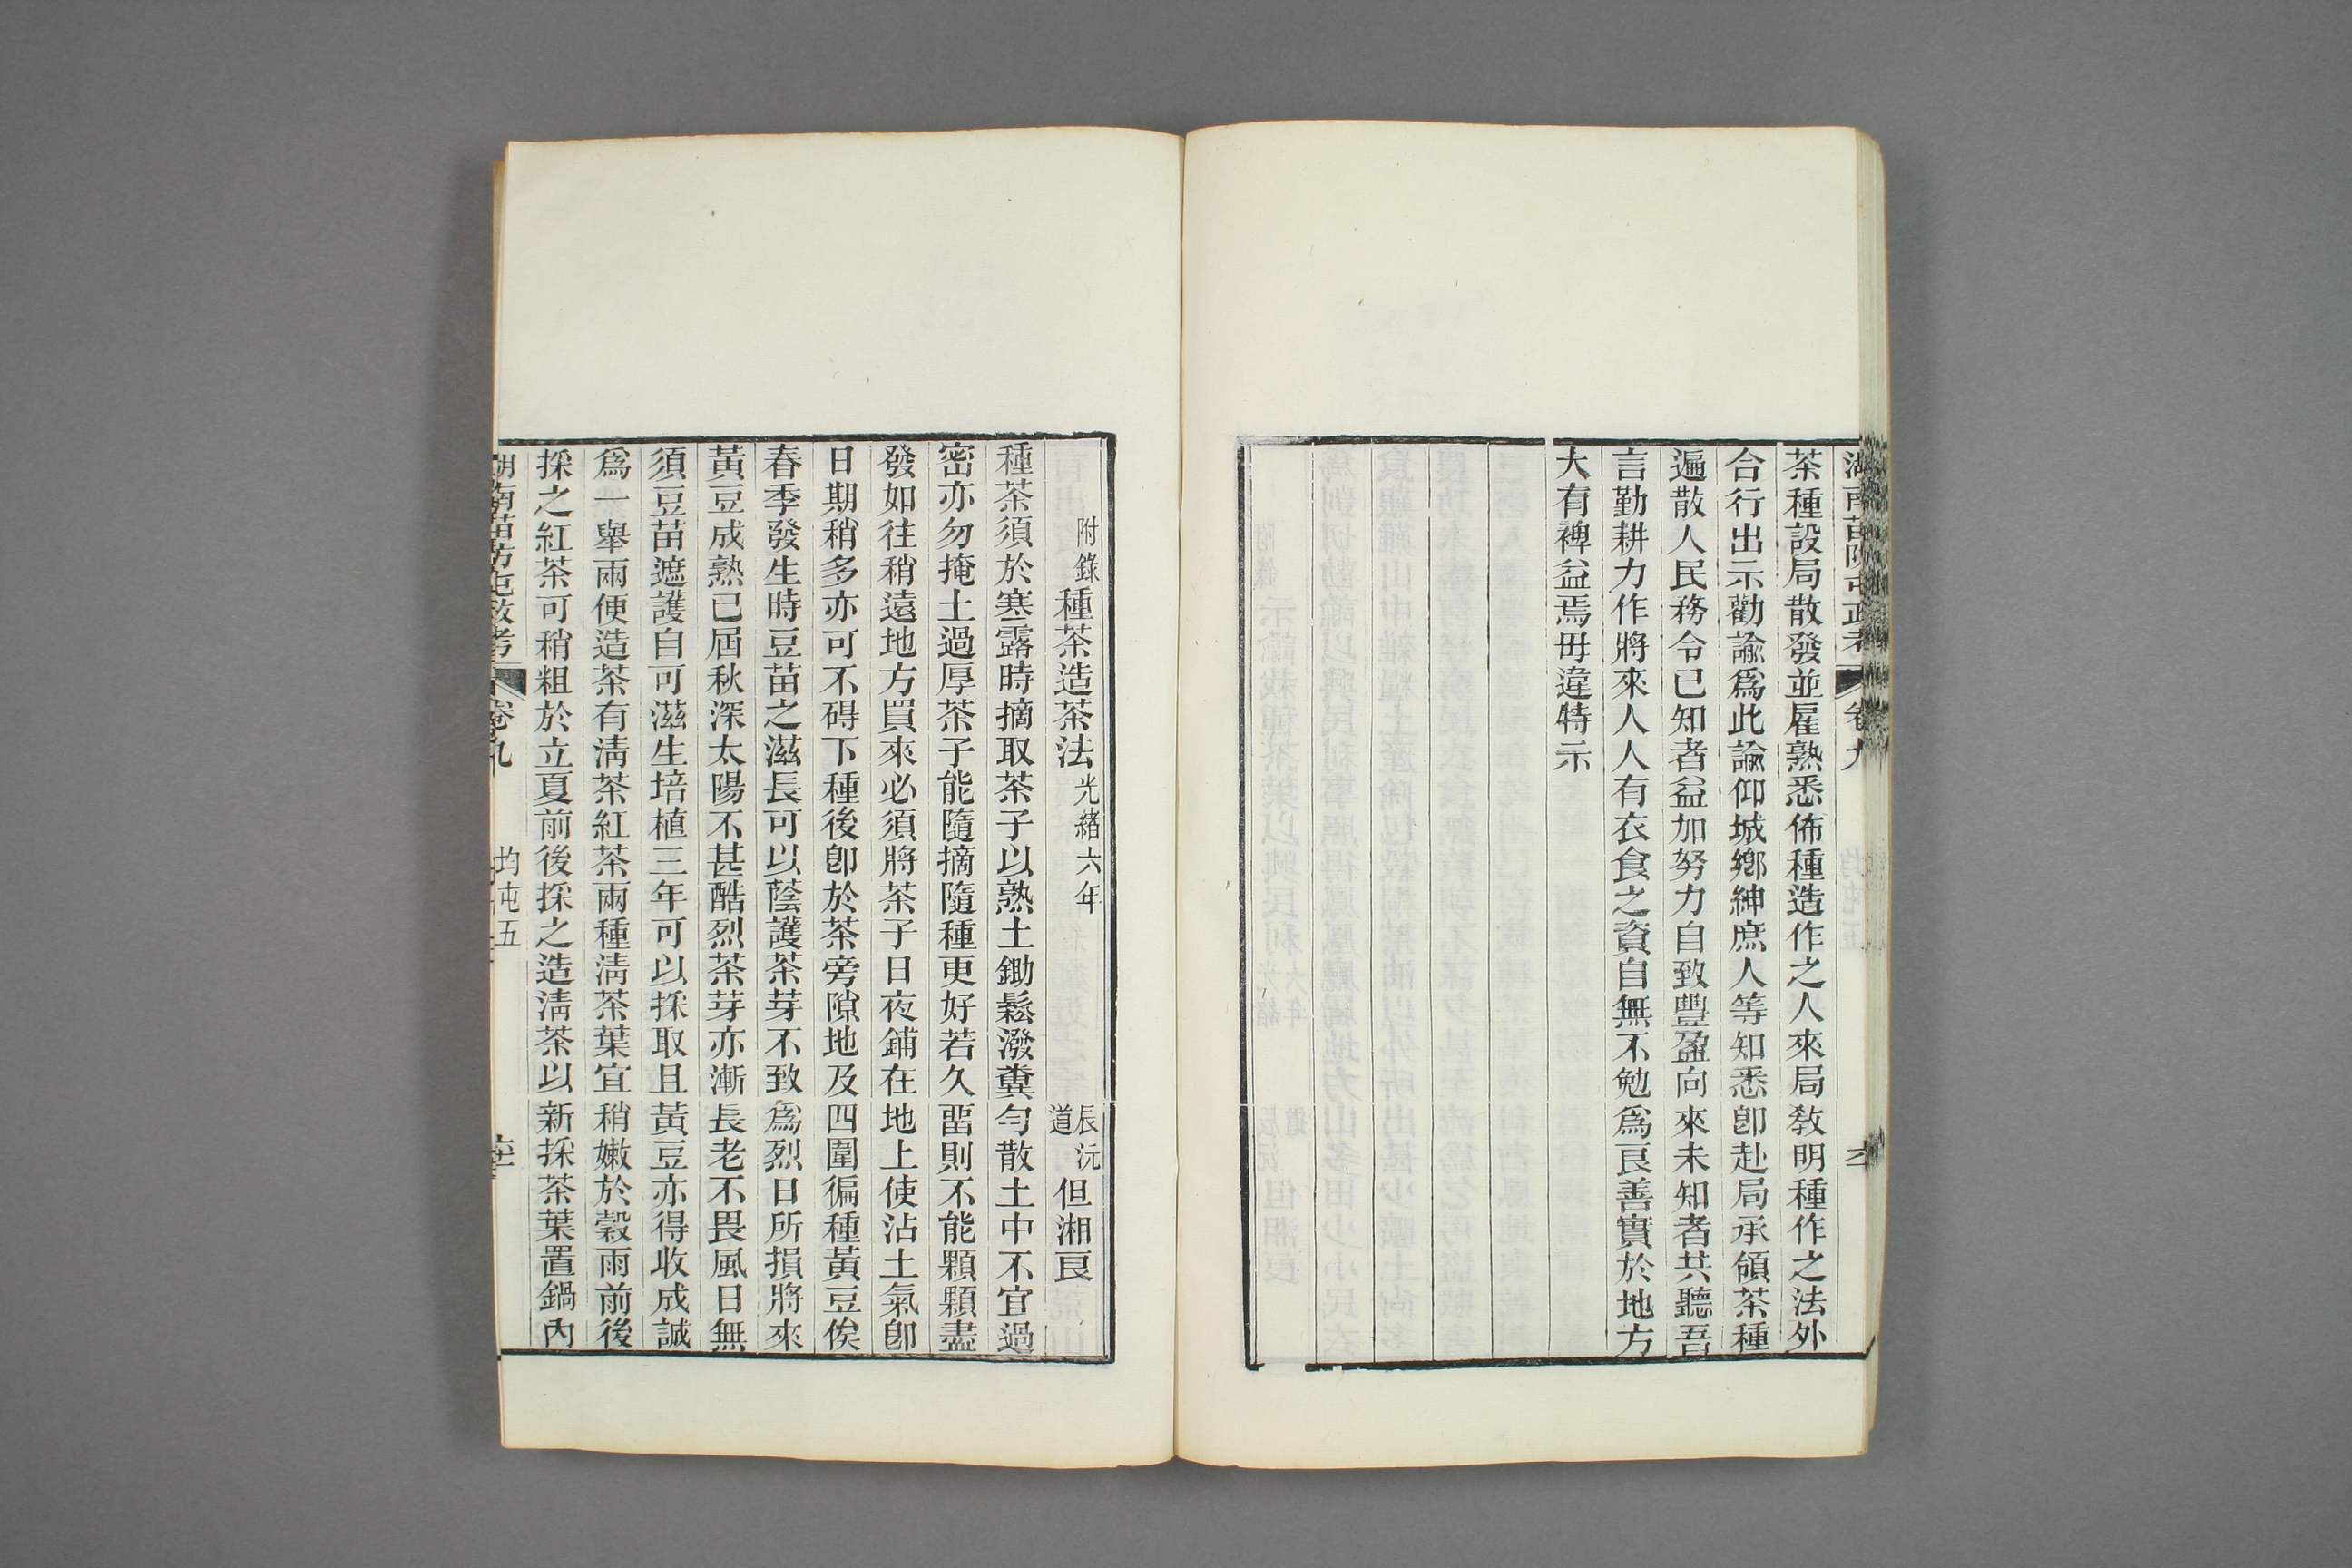 湖南苗防屯政考 卷九
茶種設局散發並雇熟悉佈種造作之人來局敎明種作之法外
合行出示勸諭爲此諭仰城鄕紳庶人等知悉卽赴局承領茶種
遍散人民務令已知者益加努力自致豐盈向來未知者共聽吾
言勤耕力作將來人人有衣食之資自無不勉爲良善實於地方
大有裨益焉毋違特示
附錄種茶造茶法光緒六年 辰沅道但湘良
種茶須於寒露時摘取茶子以熟土鋤鬆潑糞勻散土中不宜過
密亦勿掩土過厚茶子能隨摘隨種更好若久畱則不能顆顆盡
發如往稍遠地方買來必須將茶子日夜鋪在地上使沾土氣卽
日期稍多亦可不碍下種後卽於茶旁隙地及四圍徧種黃豆俟
春季發生時豆苗之滋長可以蔭護茶芽不致爲烈日所損將來
黃豆成熟已屆秋深太陽不甚酷烈茶芽亦漸長老不畏風日無
須豆苗遮護自可滋生培植三年可以採取且黃豆亦得收成誠
爲一舉兩便造茶有淸茶紅茶兩種淸茶葉宜稍嫩於穀雨前後
採之紅茶可稍粗於立夏前後採之造淸茶以新採茶葉置鍋內
湖南苗防屯政考 卷九 均屯五